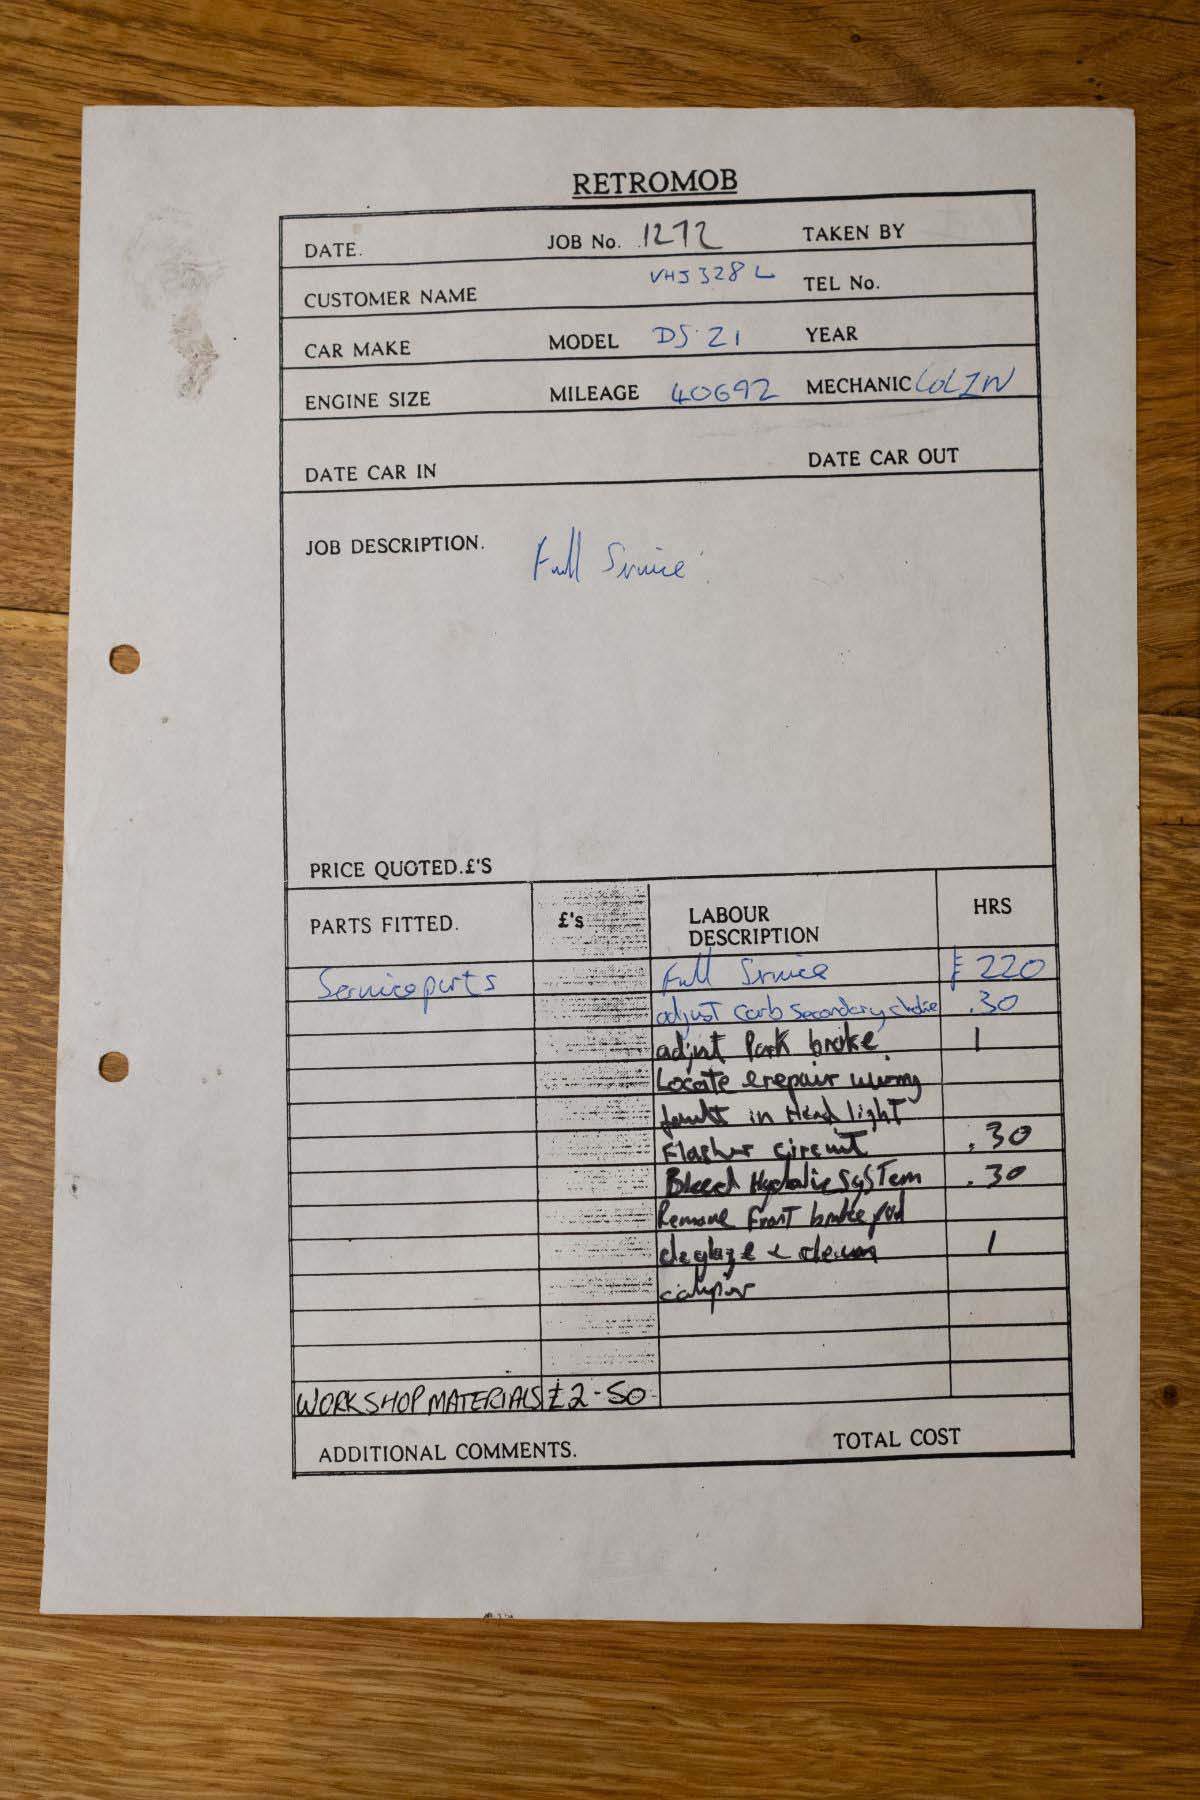 RETROMOB
DATE. JOB No. 1272 TAKEN BY
CUSTOMER NAME VHJ 328 L TEL No.
CAR MAKE MODEL DS 21 YEAR
ENGINE SIZE MILEAGE 40692 MECHANIC COLIN
DATE CAR IN DATE CAR OUT
JOB DESCRIPTION. Full Service
PRICE QUOTED.£'S
PARTS FITTED. £'s LABOUR DESCRIPTION HRS
Service parts Full Service £ 220
adjust carb secondary choke .30
adjust Park brake 1
Locate & repair wiring
fault in Head light
Flasher circuit .30
Bleed Hydralic SysTem .30
Remove Front brake pad
deglaze & clean 1
caliper
WORKSHOP MATERIALS £2-50
ADDITIONAL COMMENTS. TOTAL COST